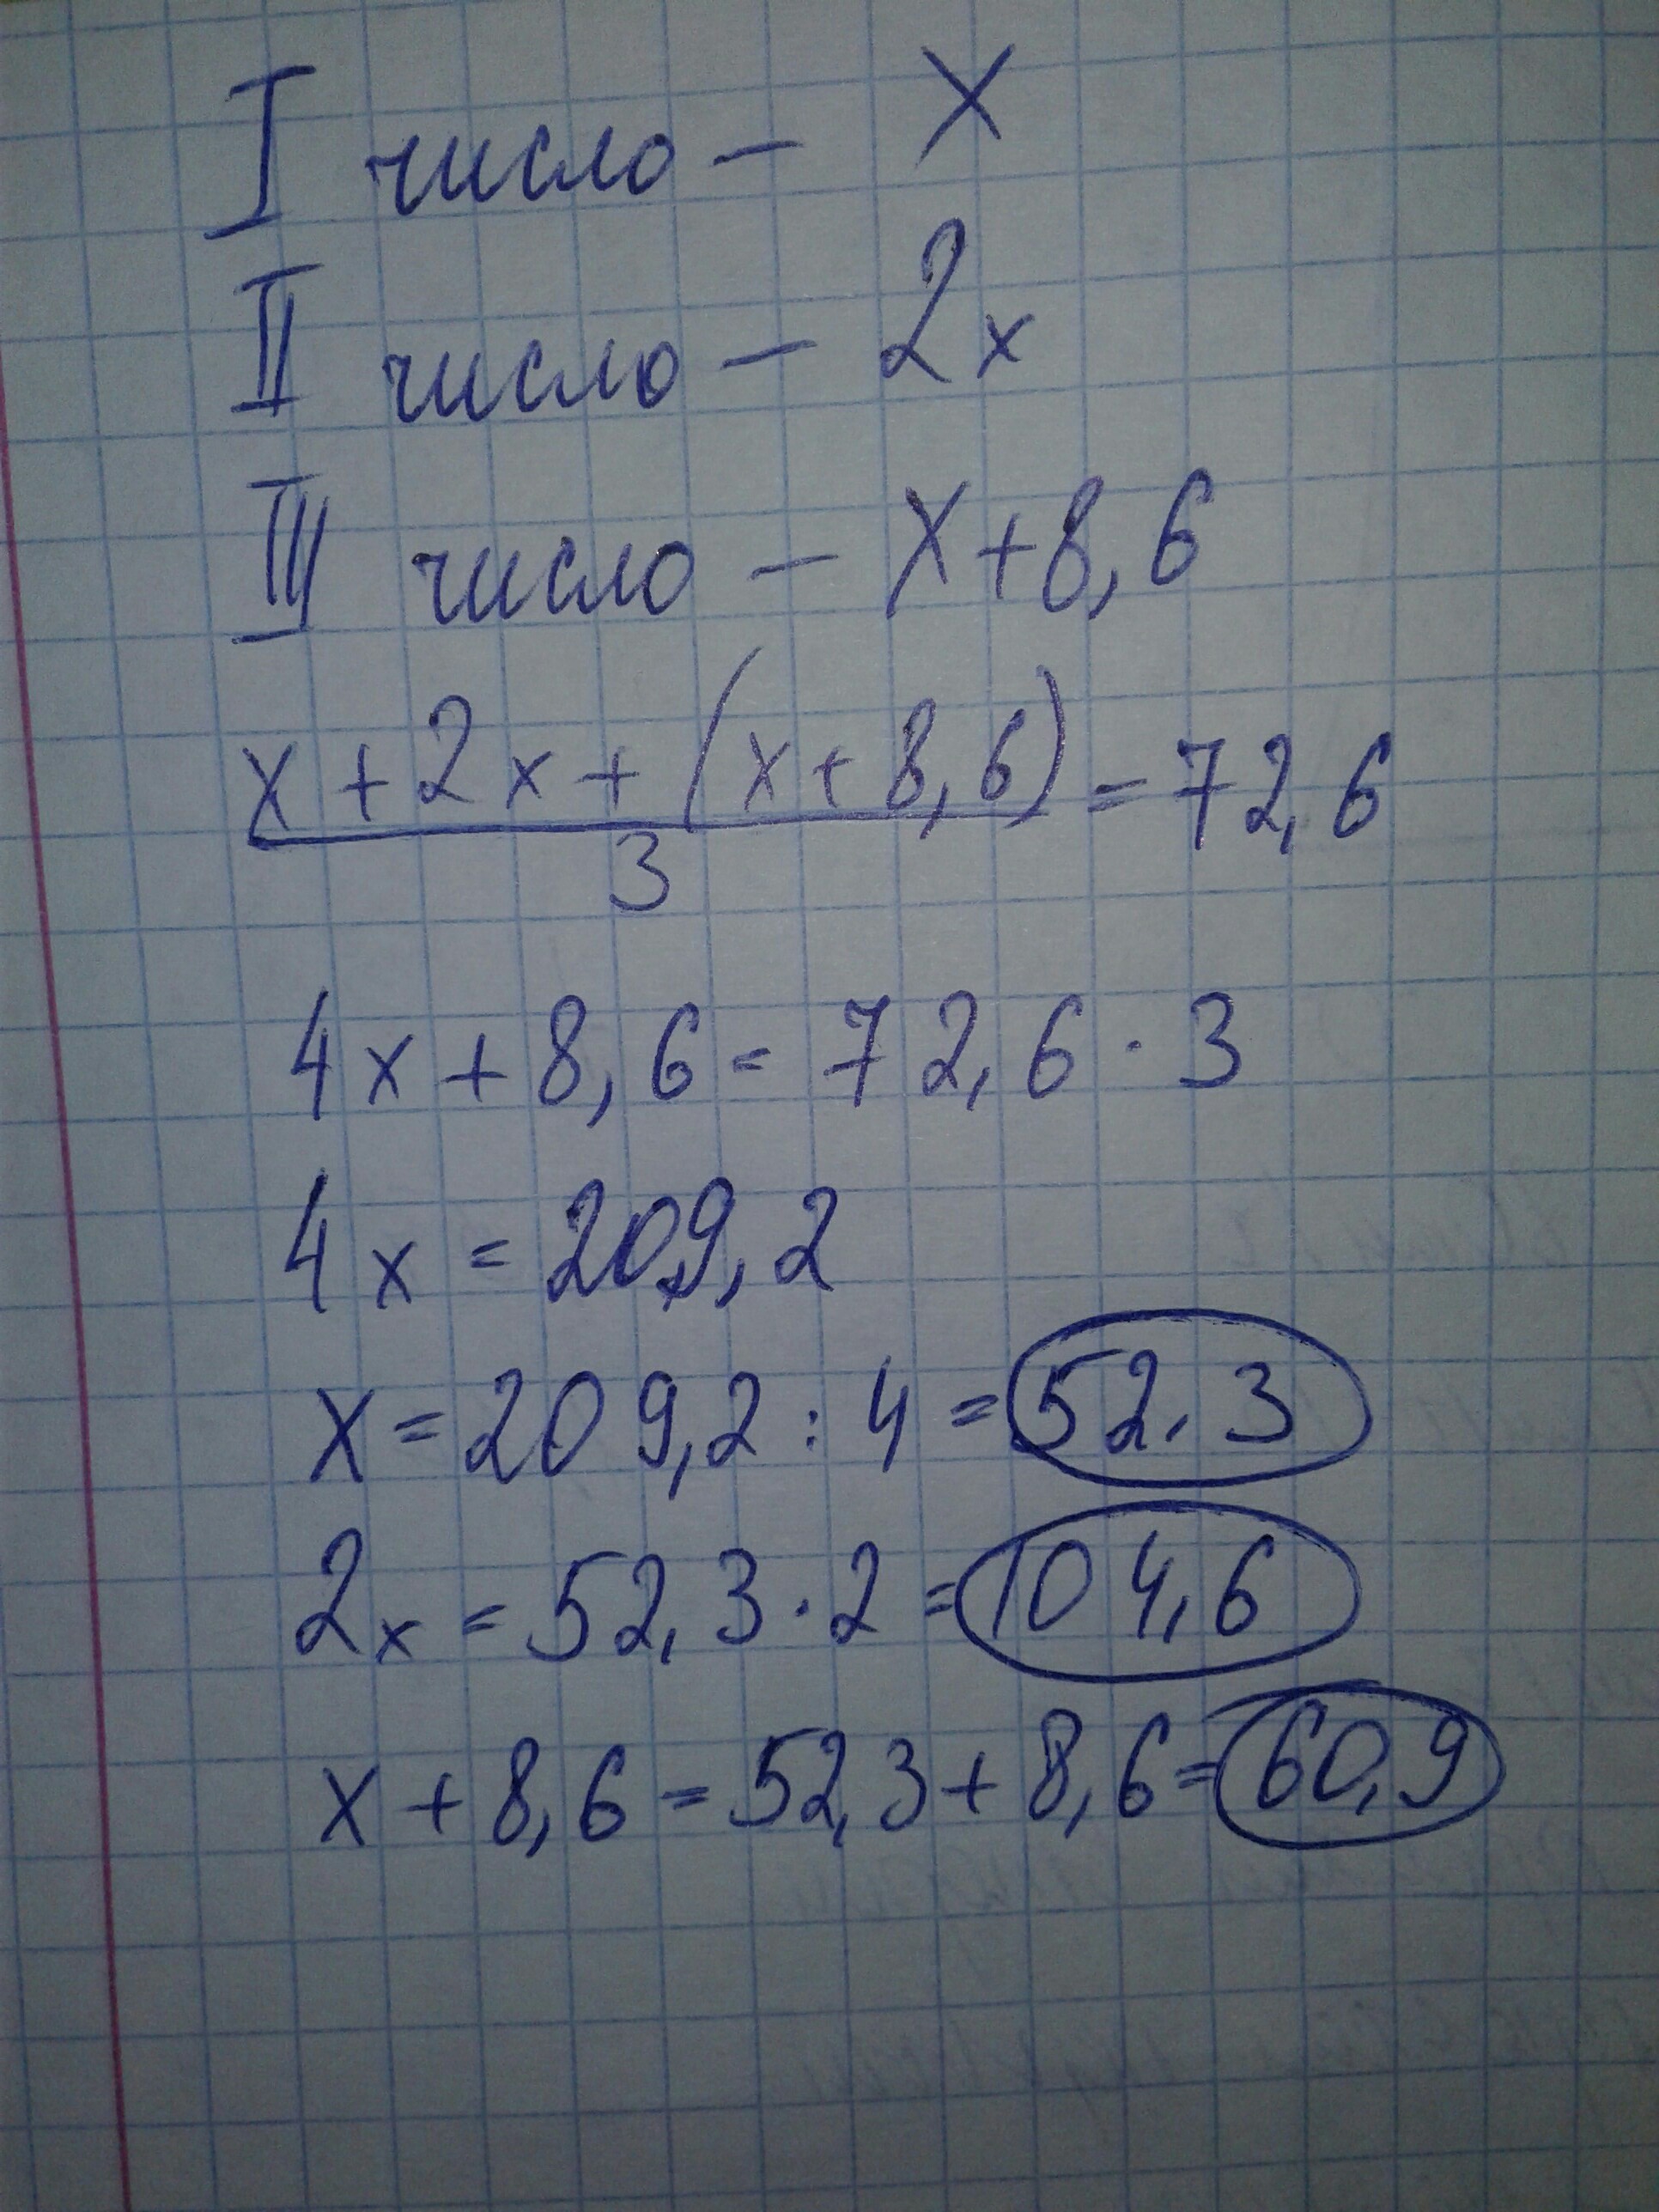 I число – x
II число – 2x
III число – x+8,6
x+2x+(x+8,6)/3=72,6
4x+8,6=72,6·3
4x=209,2
x=209,2:4=52,3
2x=52,3·2=104,6
x+8,6=52,3+8,6=60,9